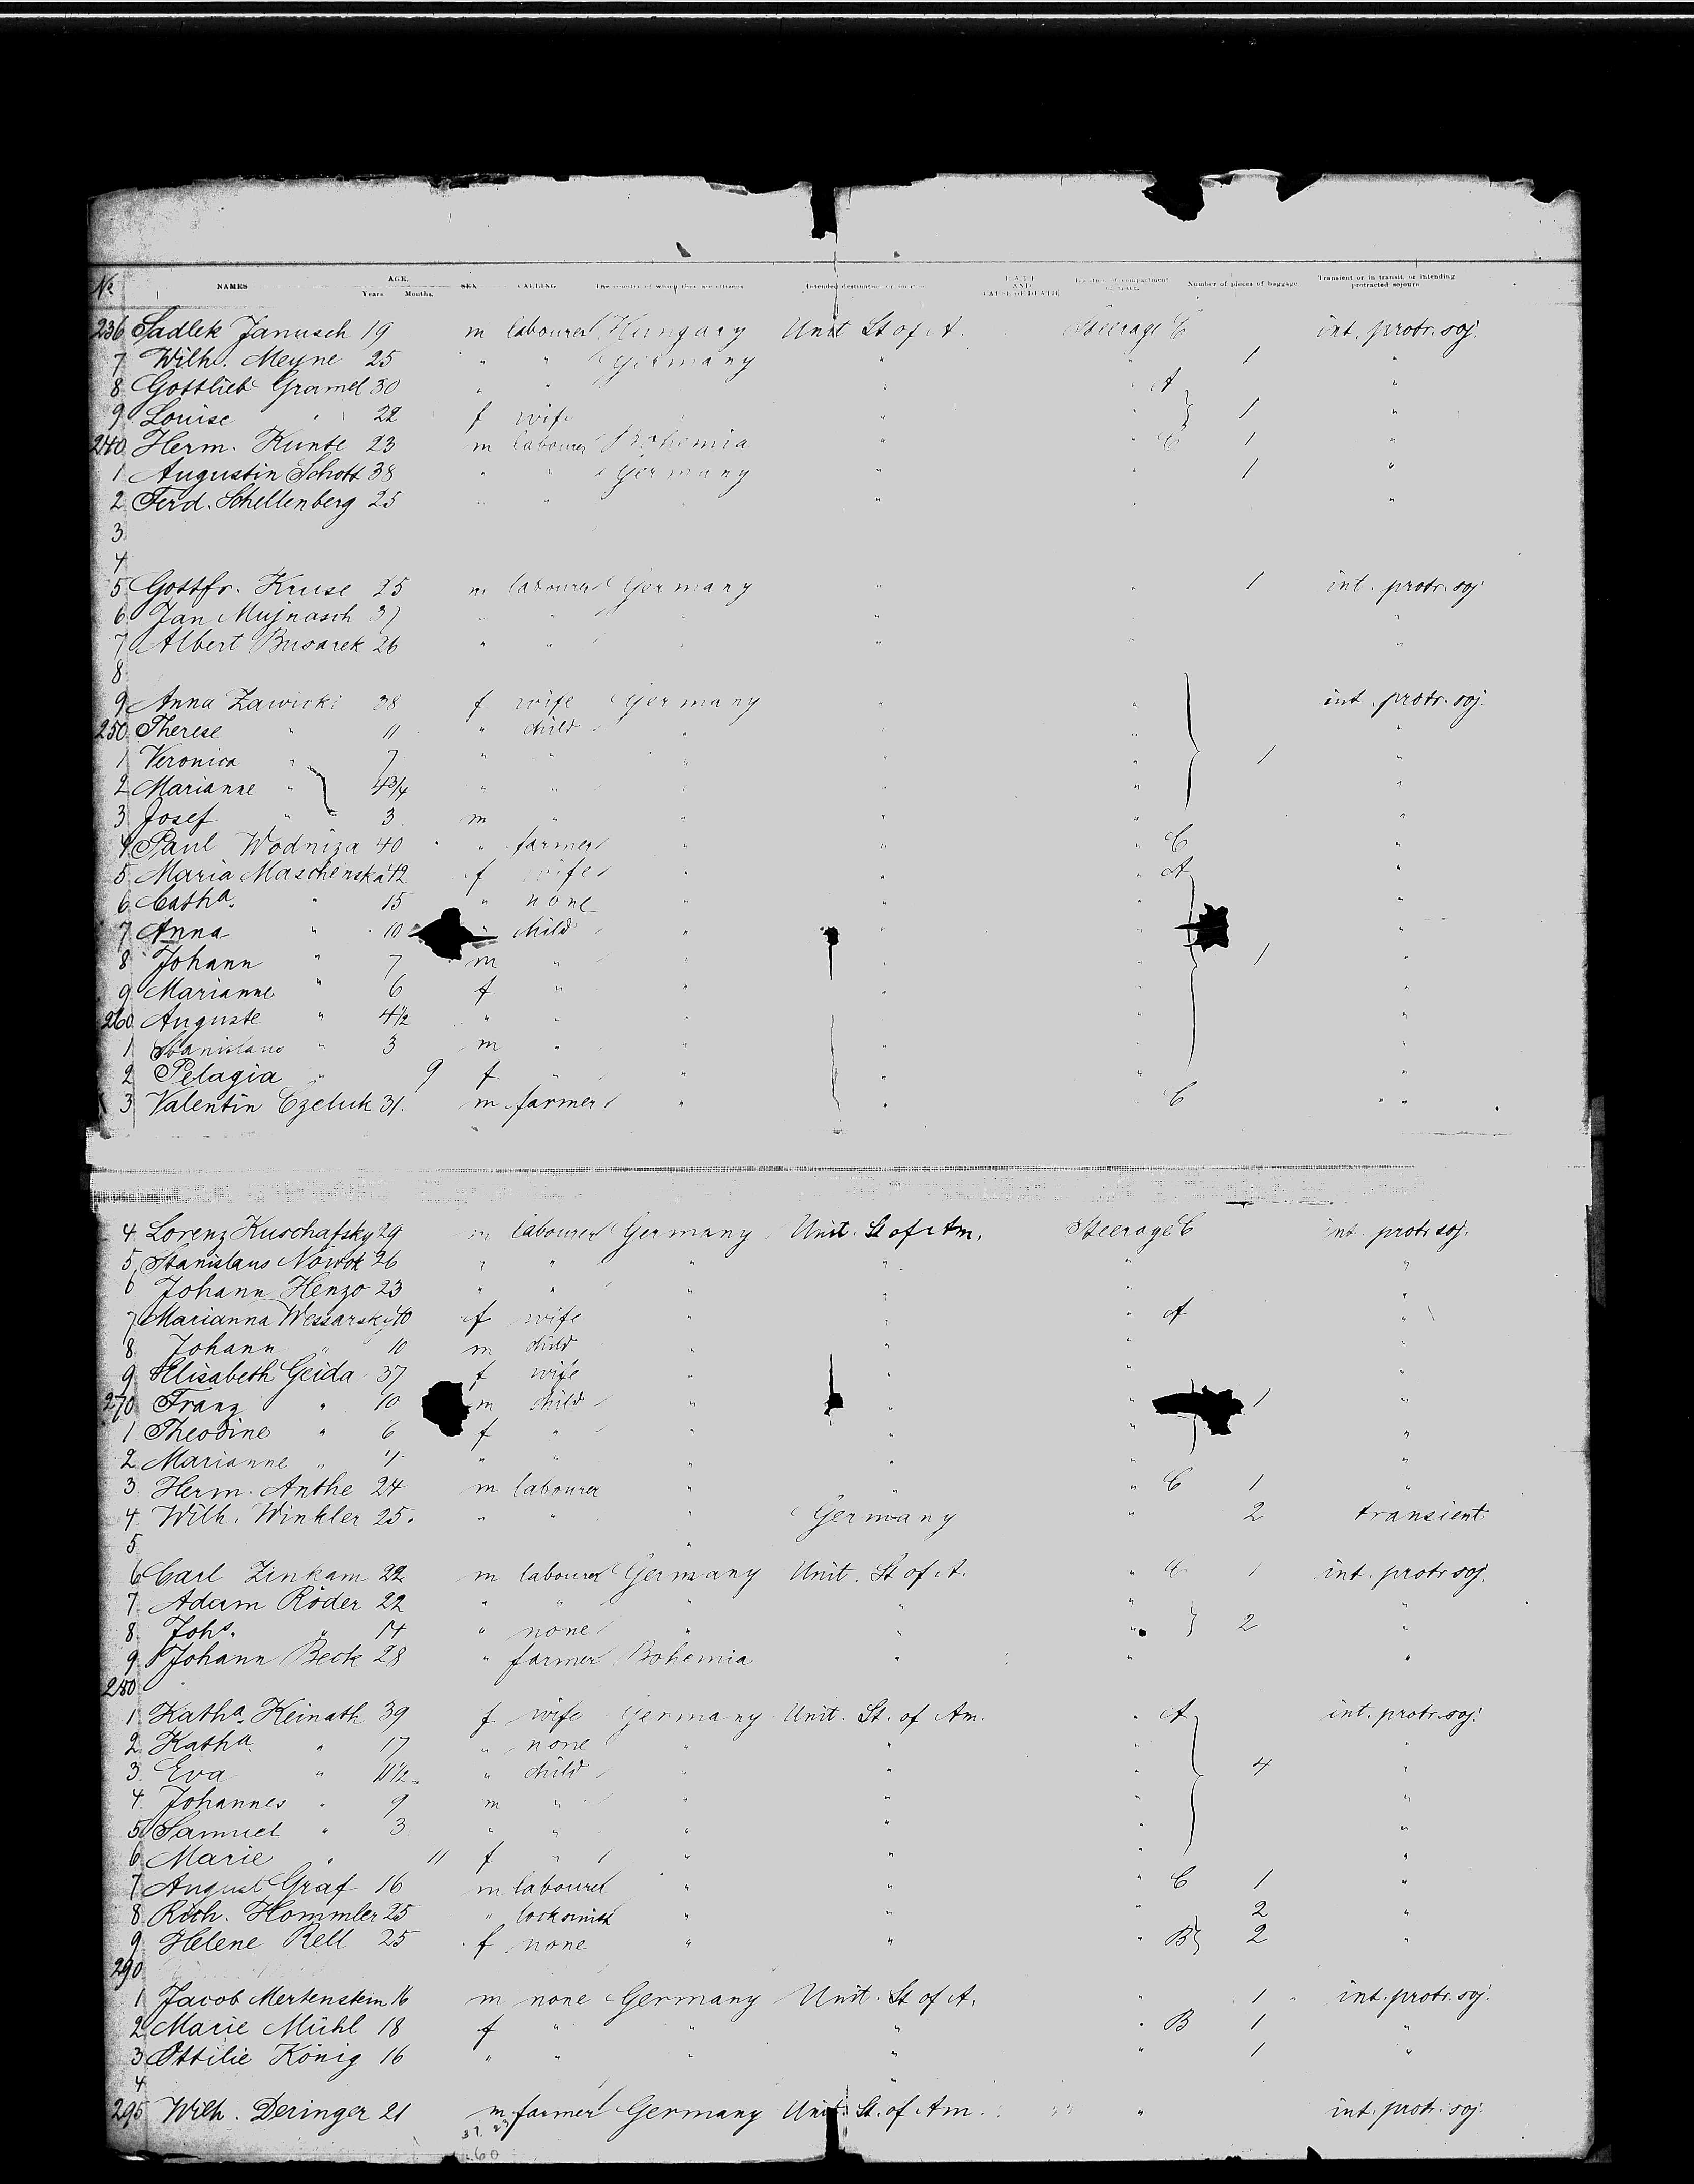 No. NAMES AGE. Years Months. SEX CALLING The country of which they are citizens Intended destination or location DATE AND CAUSE OF DEATH. Location of compartment or space. Number of pieces of baggage. Transient or in transit, or intending protracted sojourn
236 Sadlek Janusch 19 m labourer Hungary Unit St of A. Steerage C int. protr. soj.
7 Wilh. Meyne 25 " " Germany " " 1 "
8 Gottlieb Gramel 30 " " " " A "
9 Louise " 22 f wife " " 1 "
240 Herm. Kunte 23 m labourer Bohemia " " C 1 "
1 Augustin Schott 38 " " Germany " " 1 "
2 Ferd. Schellenberg 25 " " " " " "
3
4
5 Gottfr. Kruse 25 m labourer Germany " " 1 int. protr. soj.
6 Jan Mujnasch 37 " " " " " "
7 Albert 26 " " " " " "
8
9 Anna Zawicki 38 f wife Germany " " int. protr. soj.
250 Therese " 11 " child " " " "
1 Veronica " 7 " " " " " 1 "
2 Marianne " 4 3/4 " " " " " "
3 Josef " 3 m " " " " "
4 Paul Wodniza 40 " farmer " " " C "
5 Maria Maschenska 42 f wife " " " A "
6 Catha. " 15 " none " " " "
7 Anna " 10 " child " " "
8 Johann " 7 m " " " " 1 "
9 Marianne " 6 f " " " " "
260 Auguste " 4 1/2 " " " " " "
1 Stanislaus " 3 m " " " " "
2 Pelagia " 9 f " " " " "
3 Valentin Czeluk 31. m farmer " " " C "
4 Lorenz Kuschafsky 29 m labourer Germany Unit. St of Am. Steerage C int. protr soj.
5 Stanislaus Nowok 26 " " " " " "
6 Johann Henzo 23 " " " " " "
7 Marianna Wessarsky 40 f wife " " " A "
8 Johann " 10 m child " " " "
9 Elisabeth Geida 37 f wife " " " "
270 Franz " 10 m child " " " 1 "
1 Theodine " 6 f " " " " "
2 Marianne " 4 " " " " " "
3 Herm. Anthe 24 m labourer " " " C 1 "
4 Wilh. Winkler 25. " " " Germany " 2 transient
5 "
6 Carl Zinkam 22 m labourer Germany Unit. St of A. " C 1 int. protr soj.
7 Adam Röder 22 " " " " " "
8 Johs. " 14 " none " " " 2 "
9 Johann Beck 28 " farmer Bohemia " " "
280
1 Katha. Keinath 39 f wife Germany Unit. St. of Am. " A int. protr. soj.
2 Katha. " 17 " none " " " "
3 Eva " 11 1/2 " child " " " 4 "
4 Johannes " 9 m " " " " "
5 Samuel " 3 " " " " " "
6 Marie " 11 f " " " " "
7 August Graf 16 m labourer " " " C 1 "
8 Rich. Hommler 25 " locksmith " " " 2 "
9 Helene Rell 25 f none " " " B 2 "
290
1 Jacob Mertenstein 16 m none Germany Unit. St of A. " 1 int. protr. soj.
2 Marie Mühl 18 f " " " " B 1 "
3 Ottilie König 16 " " " " " 1 "
4 "
295 Wilh. Deringer 21 m farmer Germany Unit. St. of Am. " int. protr. soj.
60